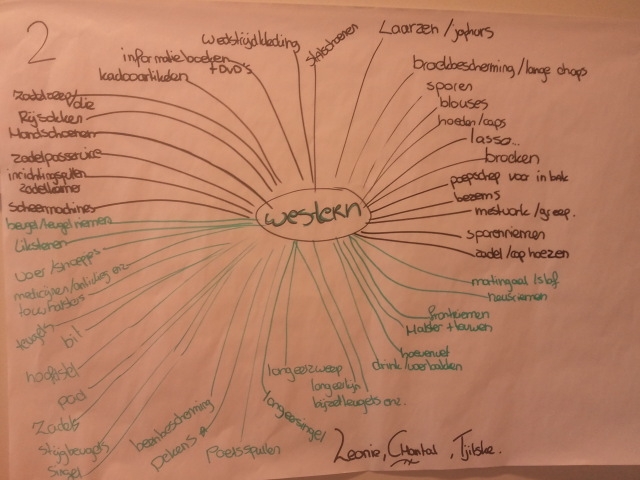 2
wedstrijdkleding
stalschoenen
Laarzen / jophurs
informatieboeken
+ DVD's
kadooartikelen
broekbescherming / lange chaps
sporen
blouses
hoeden / caps
lasso...
broeken
poepschep voor in bak
bezems
mestvork / greep.
sporenriemen
zadel / cap hoezen
zadelzeep /
olie
Rijsokken
Handschoenen
zadelpasservice
inrichtingspullen
zadelkamer
Scheermachines
western
beugel / teugel riemen
Likstenen
voer / snoepjes
medicijnen / antivlieg enz
touwhalsters
teugels
bit
hoofdstel
pad
Zadels
stijgbeugels
Singel
beenbescherming
Dekens
Poetsspullen
longeersingel
longeerzweep
longeerlijn
bijzetteugels enz.
martingaal / slof
neusriemen
frontriemen
Halster + touwen
hoevenvet
drink / voerbakken
Leonie, Chantal, Tjitske.